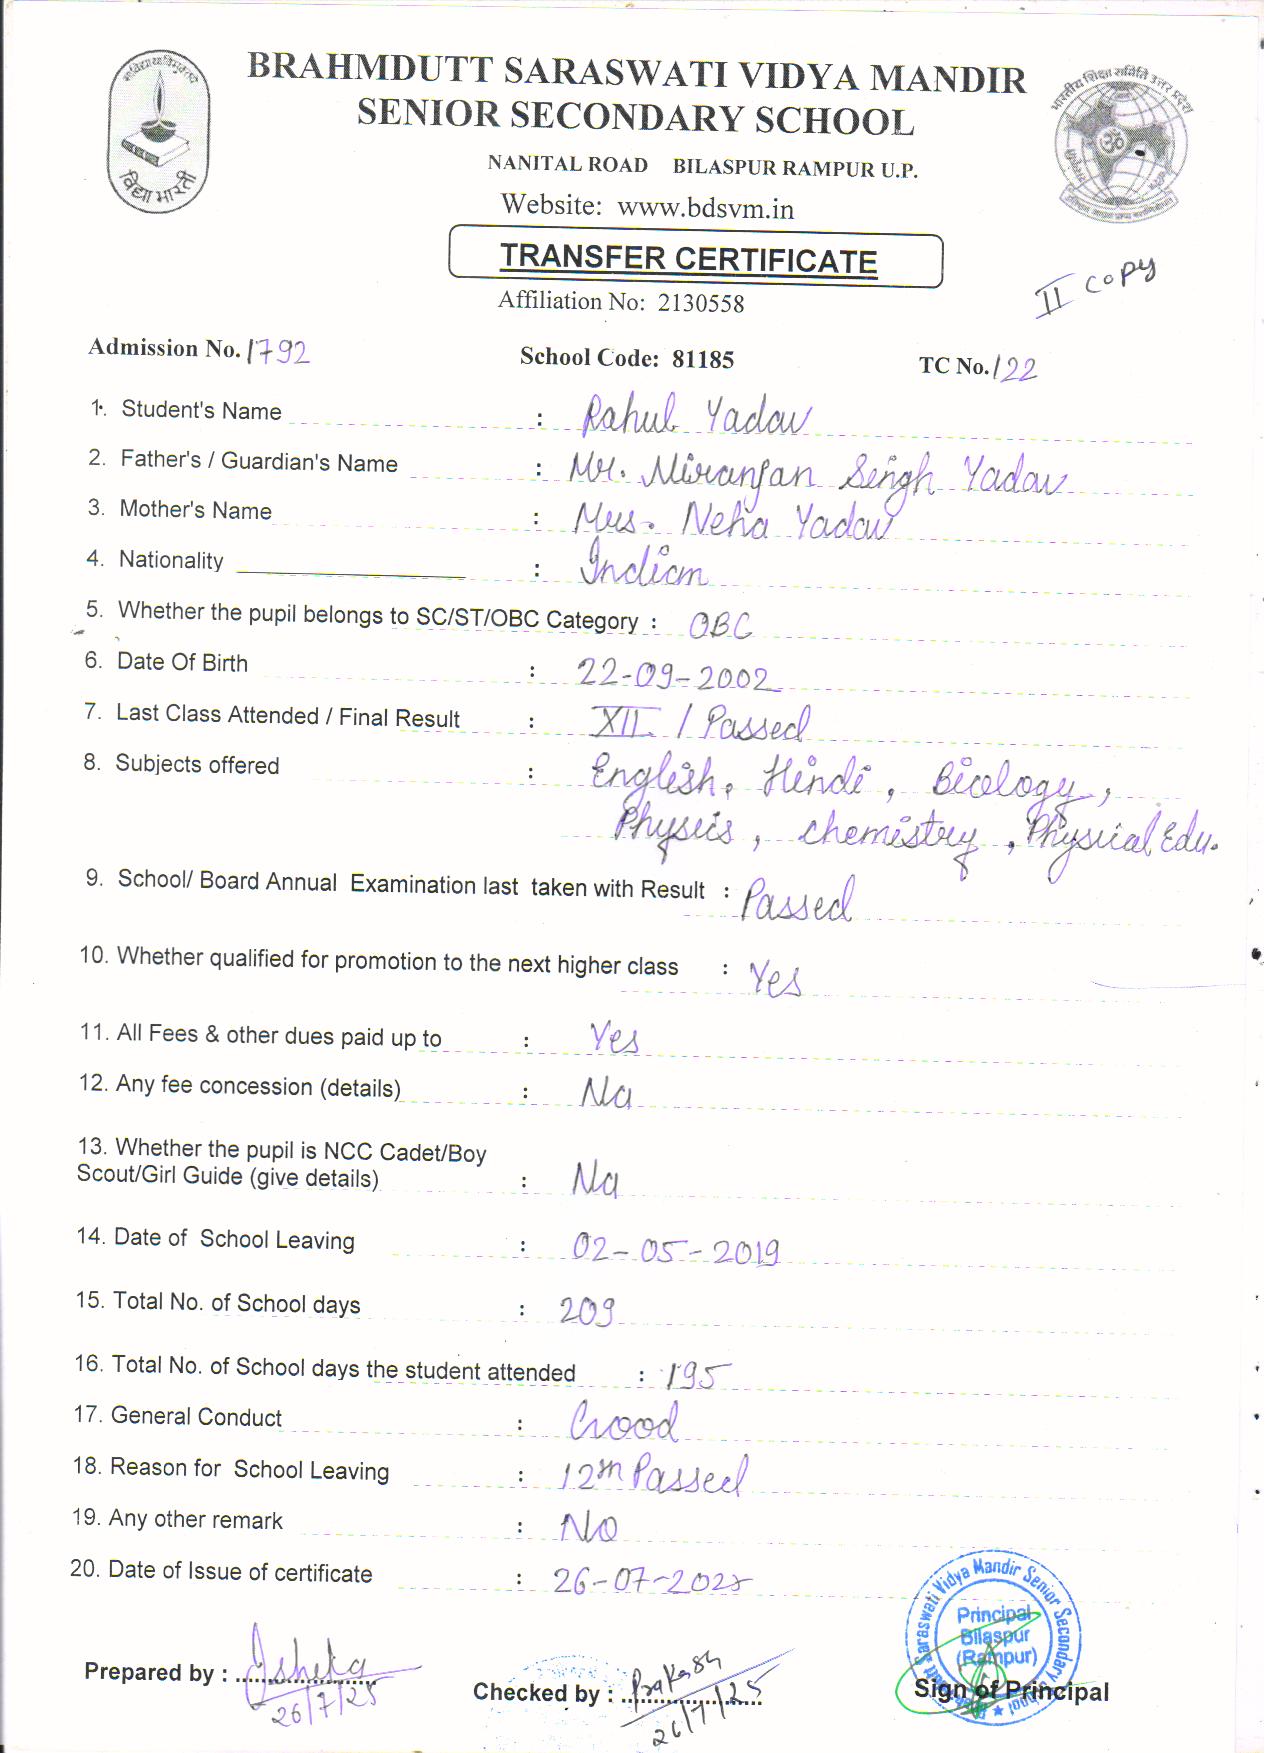 विद्या भारती
BRAHMDUTT SARASWATI VIDYA MANDIR
SENIOR SECONDARY SCHOOL
NANITAL ROAD BILASPUR RAMPUR U.P.
Website: www.bdsvm.in
भारतीय शिक्षा समिति उत्तर प्रदेश
TRANSFER CERTIFICATE
II copy
Affiliation No: 2130558
Admission No. 1792 School Code: 81185 TC No. 122
1. Student's Name : Rahul Yadav
2. Father's / Guardian's Name : Mr. Niranjan Singh Yadav
3. Mother's Name : Mrs. Neha Yadav
4. Nationality : Indian
5. Whether the pupil belongs to SC/ST/OBC Category : OBC
6. Date Of Birth : 22-09-2002
7. Last Class Attended / Final Result : XII / Passed
8. Subjects offered : English, Hindi, Biology,
Physics, chemistry, Physical Edu.
9. School/ Board Annual Examination last taken with Result : Passed
10. Whether qualified for promotion to the next higher class : Yes
11. All Fees & other dues paid up to : Yes
12. Any fee concession (details) : Na
13. Whether the pupil is NCC Cadet/Boy
Scout/Girl Guide (give details) : Na
14. Date of School Leaving : 02-05-2019
15. Total No. of School days : 209
16. Total No. of School days the student attended : 195
17. General Conduct : Good
18. Reason for School Leaving : 12th Passed
19. Any other remark : No
20. Date of Issue of certificate : 26-07-2025
Saraswati Vidya Mandir Senior Secondary
Principal
Bilaspur
(Rampur)
Prepared by : 26/7/25
Checked by : Prakash 26/7/25
Sign of Principal